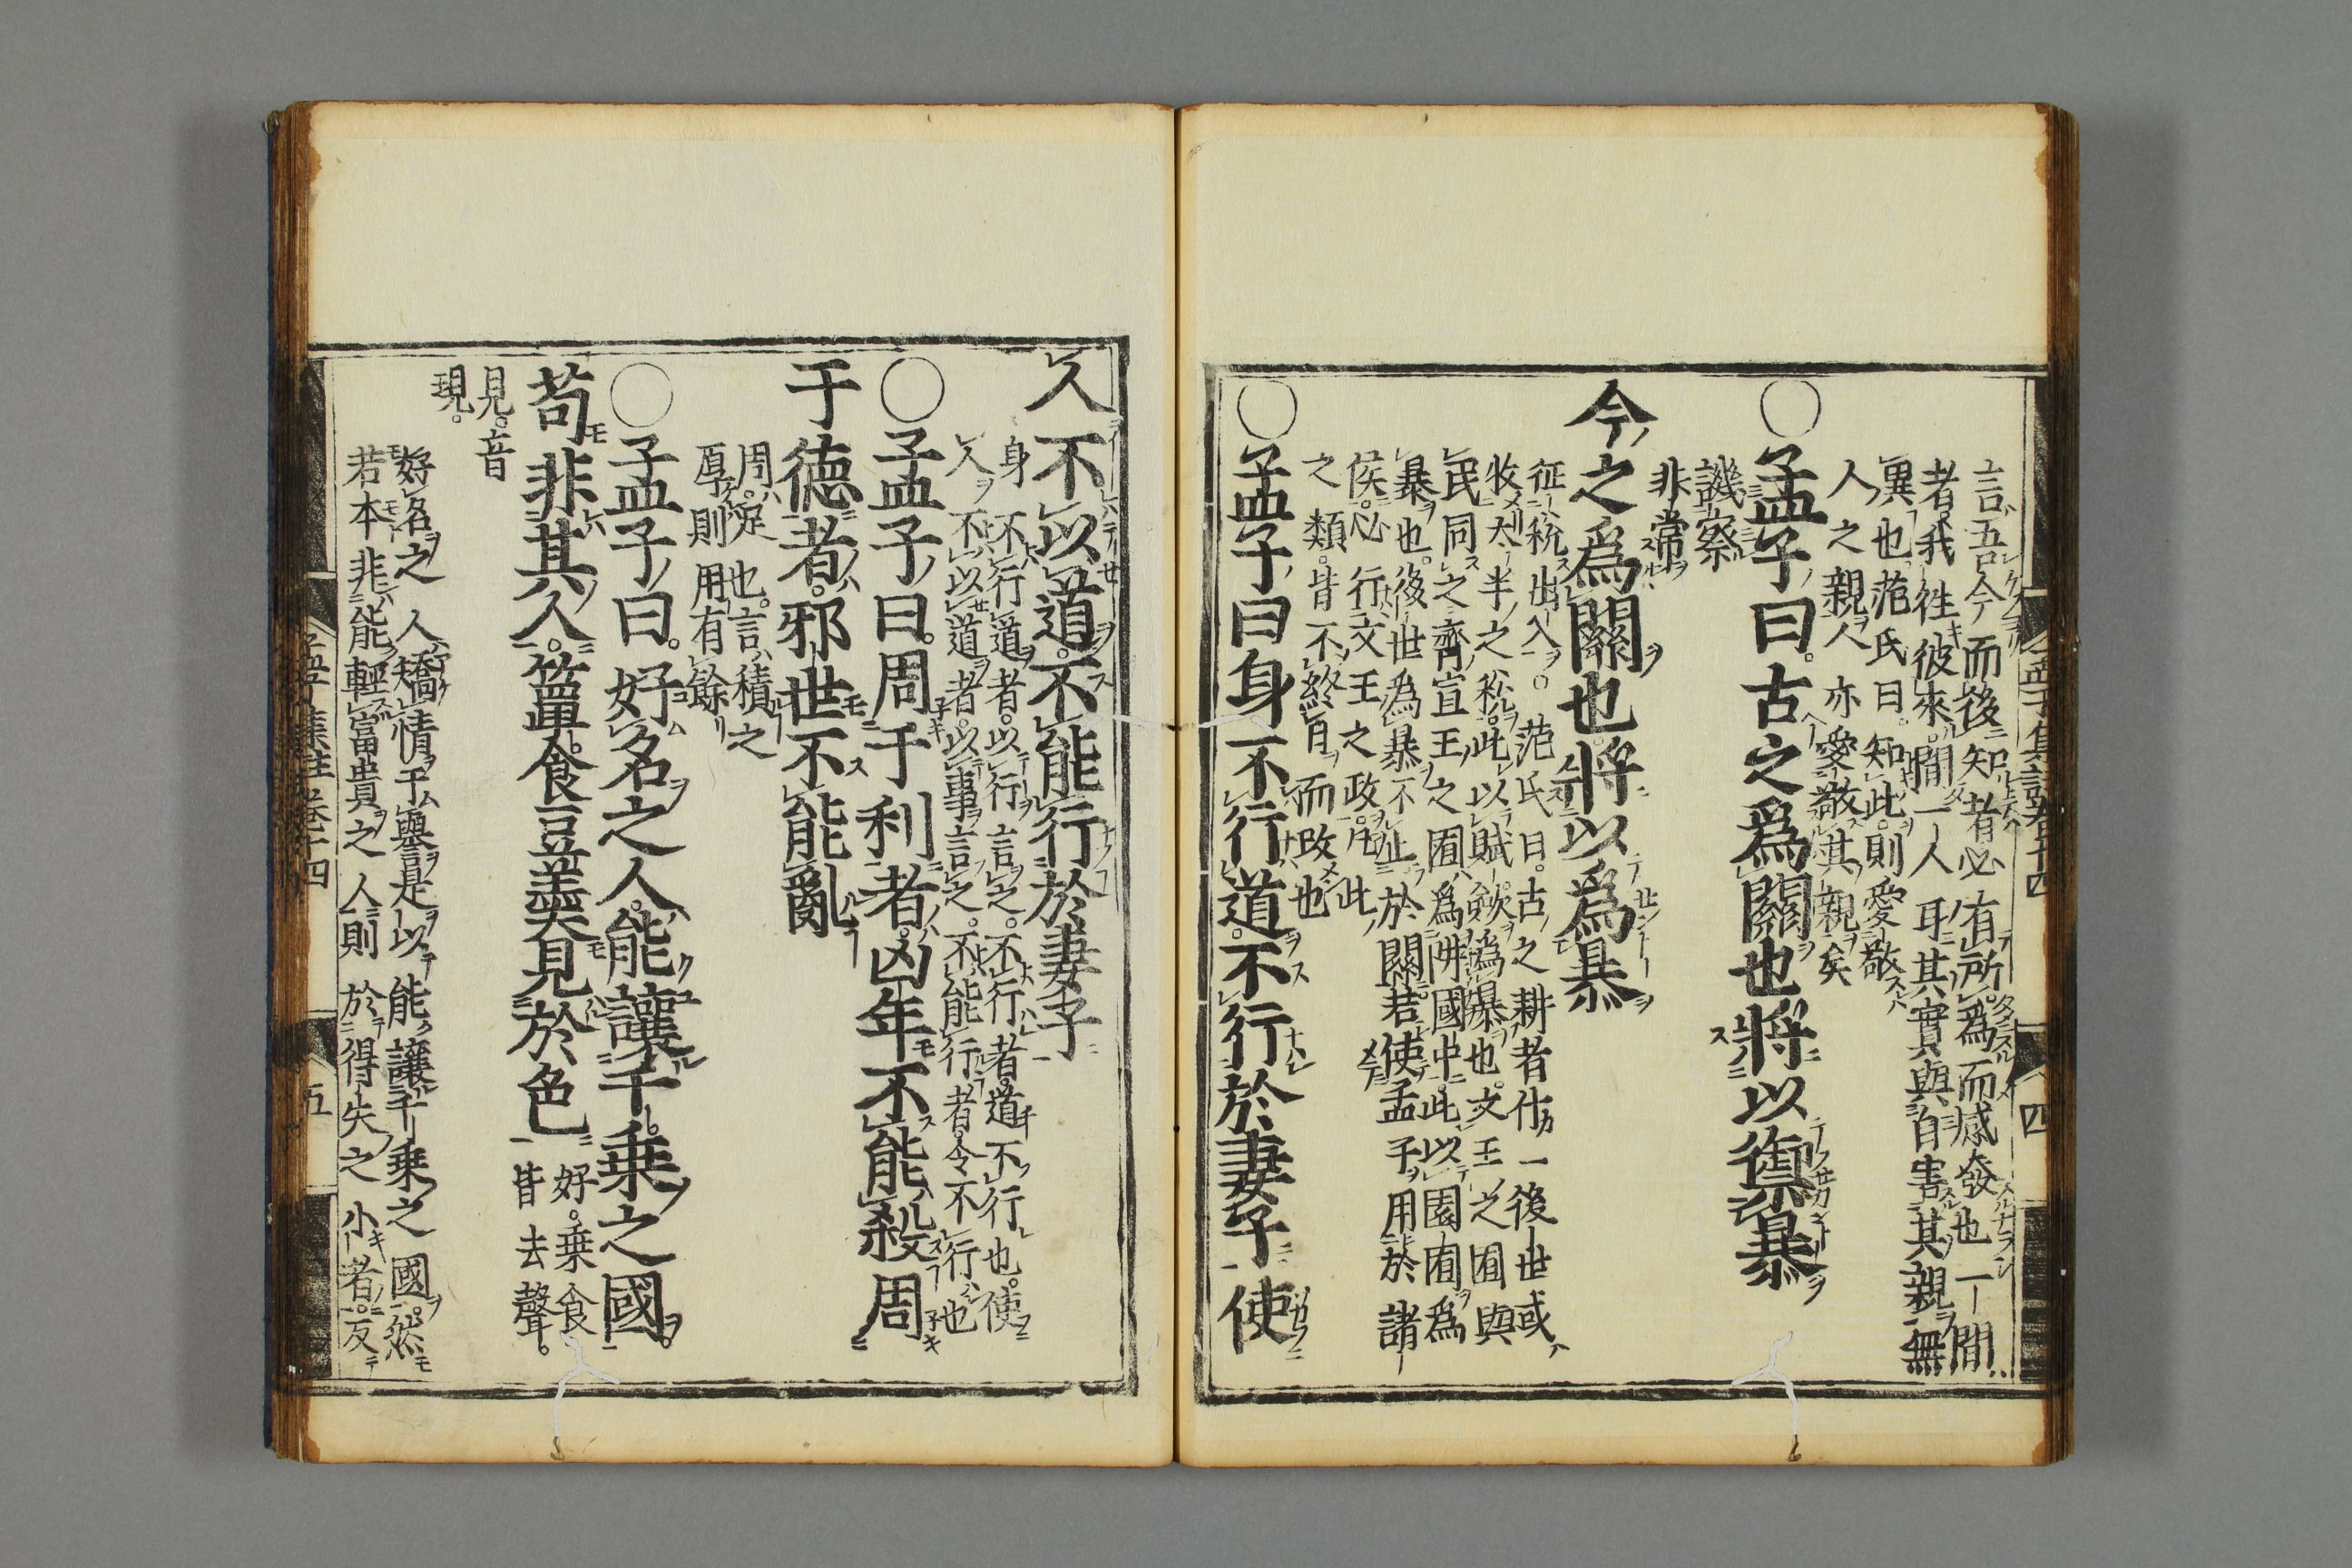 孟子集註卷十四
四
言吾今而後知者必有所為而感發也一間
者我往彼來間一人耳其實與自害其親無
異也范氏曰知此則愛敬
人之親人亦愛敬其親矣
○孟子曰。古之為關也將以禦暴
譏察
非常
今之為關也將以為暴
征稅出入。范氏曰。古之耕者什一後世或
收太半之稅。此以賦歛為暴也。文王之囿與
民同之齊宣王之囿為阱國中。此以園囿為
暴也。後世為暴不止於關若使孟子用於諸
侯。必行文王之政。凡此
之類。皆不終日而改也
○孟子曰身不行道。不行於妻子使
人不以道。不能行於妻子
身不行道者。以行言之。不行者。道不行也。使
人不以道者。以事言之。不能行者。令不行也
○孟子曰。周于利者。凶年不能殺周
于德者。邪世不能亂
周。足也。言積之
厚則用有餘
○孟子曰。好名之人。能讓千乗之國。
苟非其人。簞食豆羹見於色
好。乗食
皆去聲。
見。音
現。
好名之人矯情于譽是以能讓千乗之國。然
若本非能輕富貴之人則於得失之小者。反
孟子集註卷十四
五